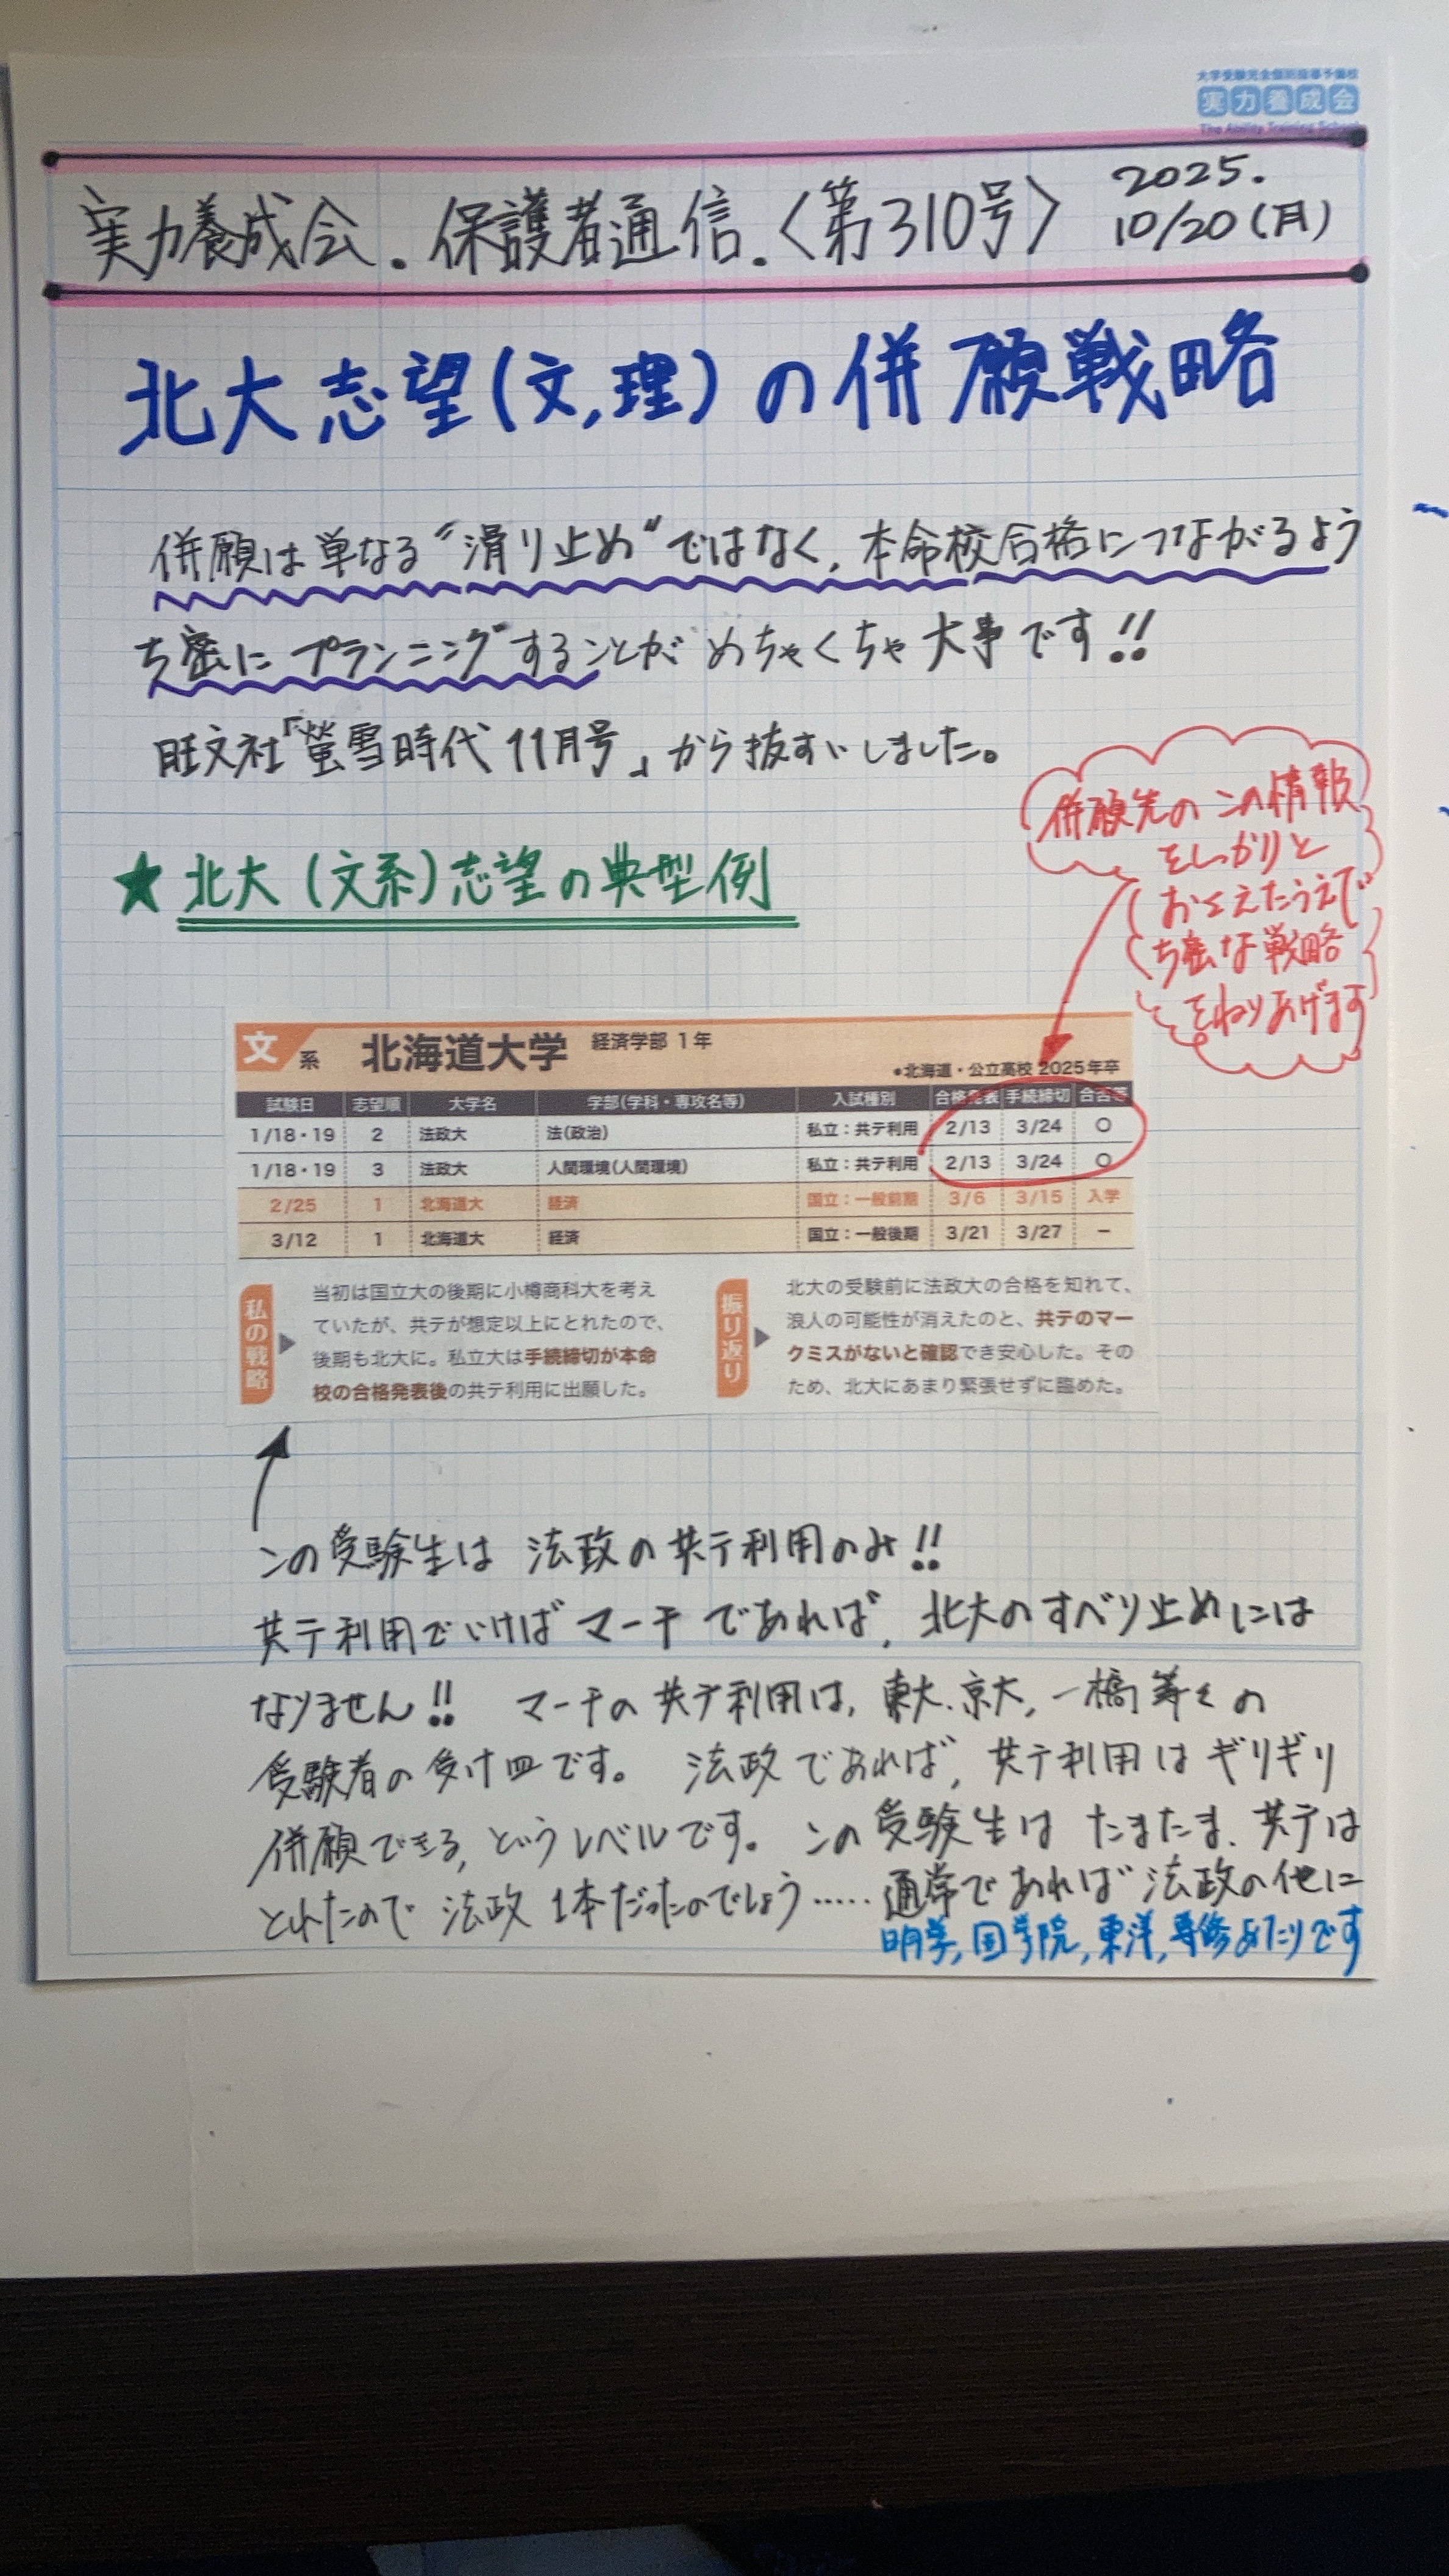 大学受験完全個別指導予備校
実力養成会
The Ability Training School
実力養成会.保護者通信.〈第310号〉
2025.
10/20(月)
北大志望(文,理)の併願戦略
併願は単なる〝滑り止め〟ではなく,本命校合格につながるよう
ち密にプランニングすることがめちゃくちゃ大事です!!
旺文社「螢雪時代11月号」から抜すいしました。
併願先のこの情報
をしっかりと
おさえたうえで
ち密な戦略
をねりあげます
★北大(文系)志望の典型例
文系 北海道大学 経済学部 1年
●北海道・公立高校 2025年卒
試験日 志望順 大学名 学部(学科・専攻名等) 入試種別 合格発表 手続締切 合否等
1/18・19 2 法政大 法(政治) 私立:共テ利用 2/13 3/24 ○
1/18・19 3 法政大 人間環境(人間環境) 私立:共テ利用 2/13 3/24 ○
2/25 1 北海道大 経済 国立:一般前期 3/6 3/15 入学
3/12 1 北海道大 経済 国立:一般後期 3/21 3/27 −
私の戦略
当初は国立大の後期に小樽商科大を考え
ていたが、共テが想定以上にとれたので、
後期も北大に。私立大は手続締切が本命
校の合格発表後の共テ利用に出願した。
振り返り
北大の受験前に法政大の合格を知れて、
浪人の可能性が消えたのと、共テのマー
クミスがないと確認でき安心した。その
ため、北大にあまり緊張せずに臨めた。
この受験生は 法政の共テ利用のみ!!
共テ利用でいけばマーチであれば,北大のすべり止めには
なりません!! マーチの共テ利用は,東大.京大,一橋等々の
受験者の受け皿です。法政であれば,共テ利用はギリギリ
併願できる,というレベルです。この受験生はたまたま、共テは
とれたので法政1本だったのでしょう……通常であれば法政の他に
明学,国学院,東洋,専修あたりです